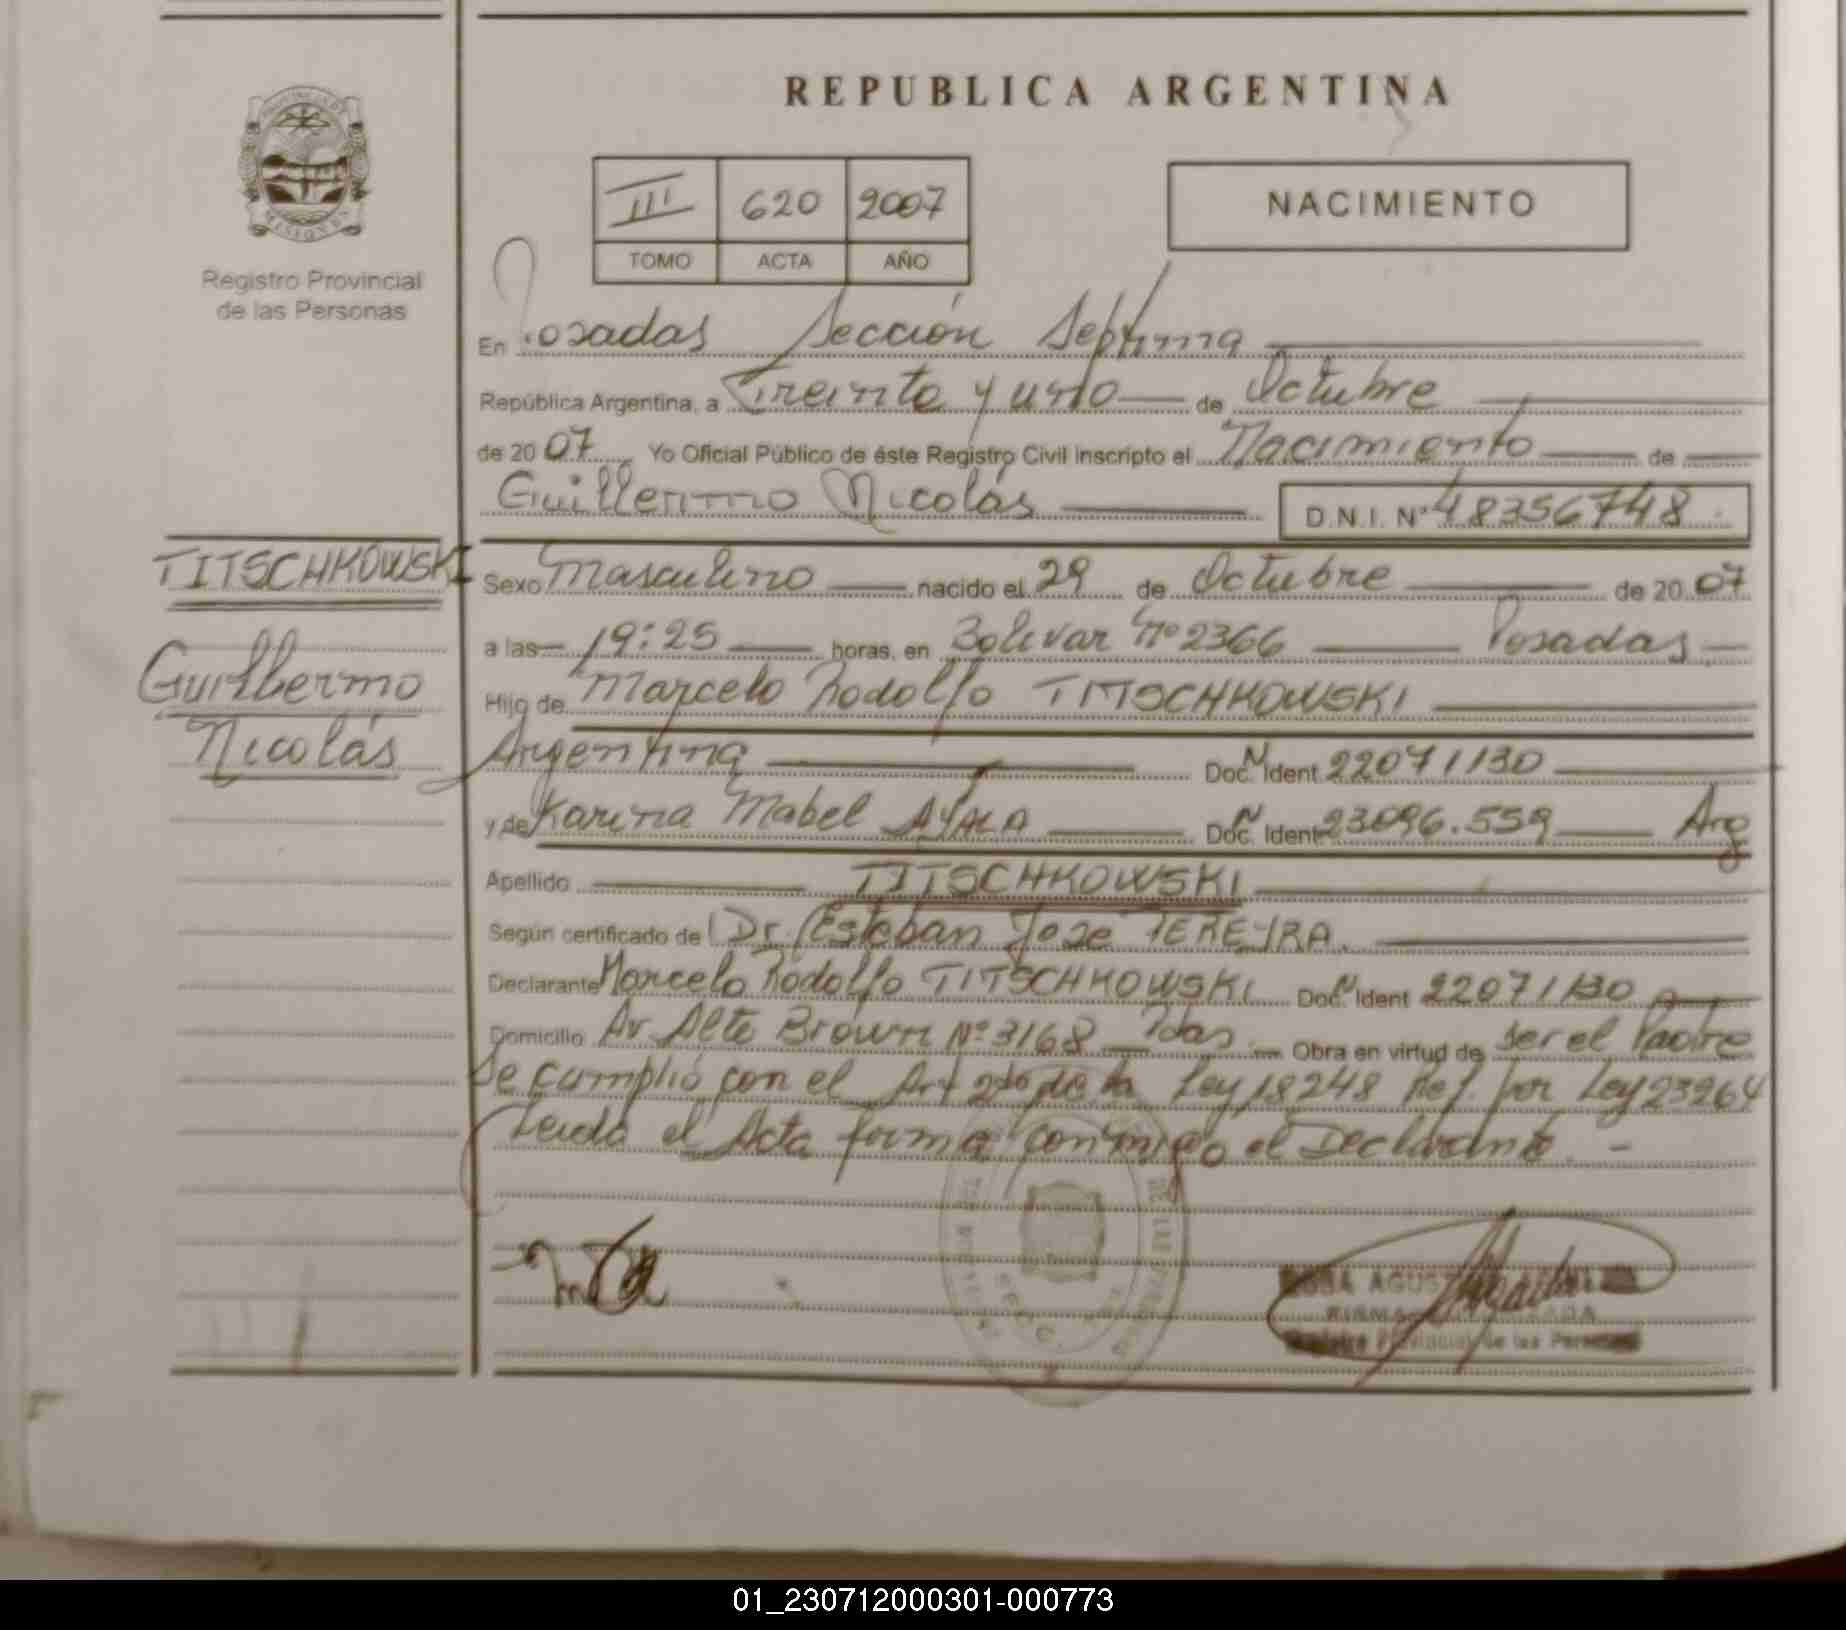 REPUBLICA ARGENTINA
III 620 2007
TOMO ACTA AÑO
NACIMIENTO
PROVINCIA DE
MISIONES
Registro Provincial
de las Personas
En Posadas Sección Septima
República Argentina, a Treinta y uno de Octubre
de 2007 Yo Oficial Público de éste Registro Civil inscripto el Nacimiento de
Guillermo Nicolás D.N.I. Nº 48356748
TITSCHKOWSKI
Guillermo
Nicolás
Sexo Masculino nacido el 29 de Octubre de 2007
a las 19:25 horas, en Bolivar Nº 2366 Posadas
Hijo de Marcelo Rodolfo TITSCHKOWSKI
Argentina Doc. N Ident 22071130
y de Karina Mabel AYALA Doc. N Ident 23096.559 Arg
Apellido TITSCHKOWSKI
Según certificado de Dr. Esteban Jose PEREYRA
Declarante Marcelo Rodolfo TITSCHKOWSKI Doc. N Ident 22071130
Domicilio Av Alte Brown Nº 3168 Pdas. Obra en virtud de ser el Padre
Se cumplió con el Art 2do de la Ley 18248 Ref. por Ley 23264
Leida el Acta firma conmigo el Declarante. -
Registro Provincial de las Personas
01_230712000301-000773